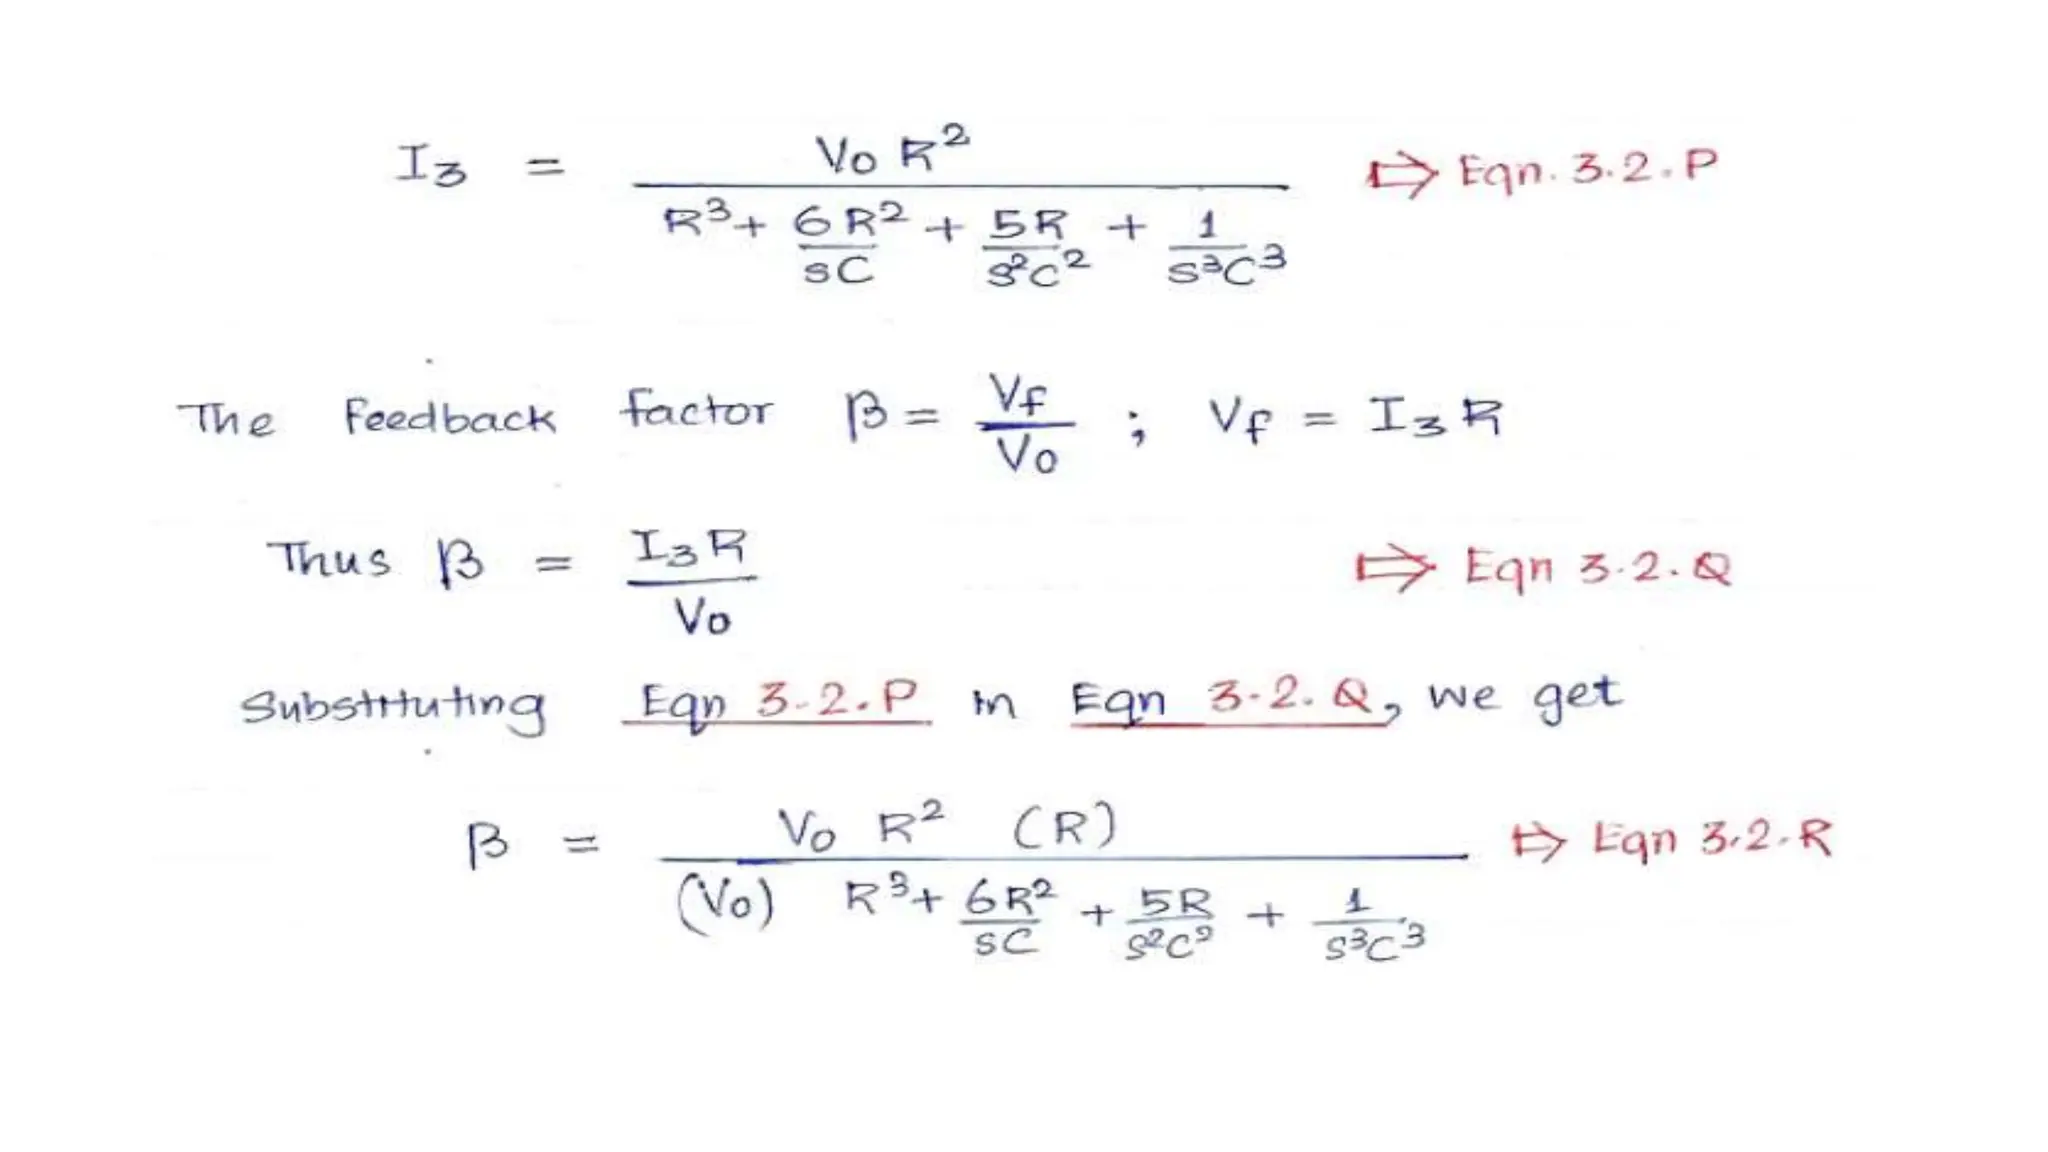 I3 = Vo R² / (R³ + 6R²/sC + 5R/s²C² + 1/s³C³) ⇒ Eqn. 3.2.P
The Feedback factor β = Vf/Vo ; Vf = I3 R
Thus β = I3 R / Vo ⇒ Eqn 3.2.Q
Substituting Eqn 3.2.P in Eqn 3.2.Q, we get
β = Vo R² (R) / (Vo) R³ + 6R²/sC + 5R/s²C² + 1/s³C³ ⇒ Eqn 3.2.R